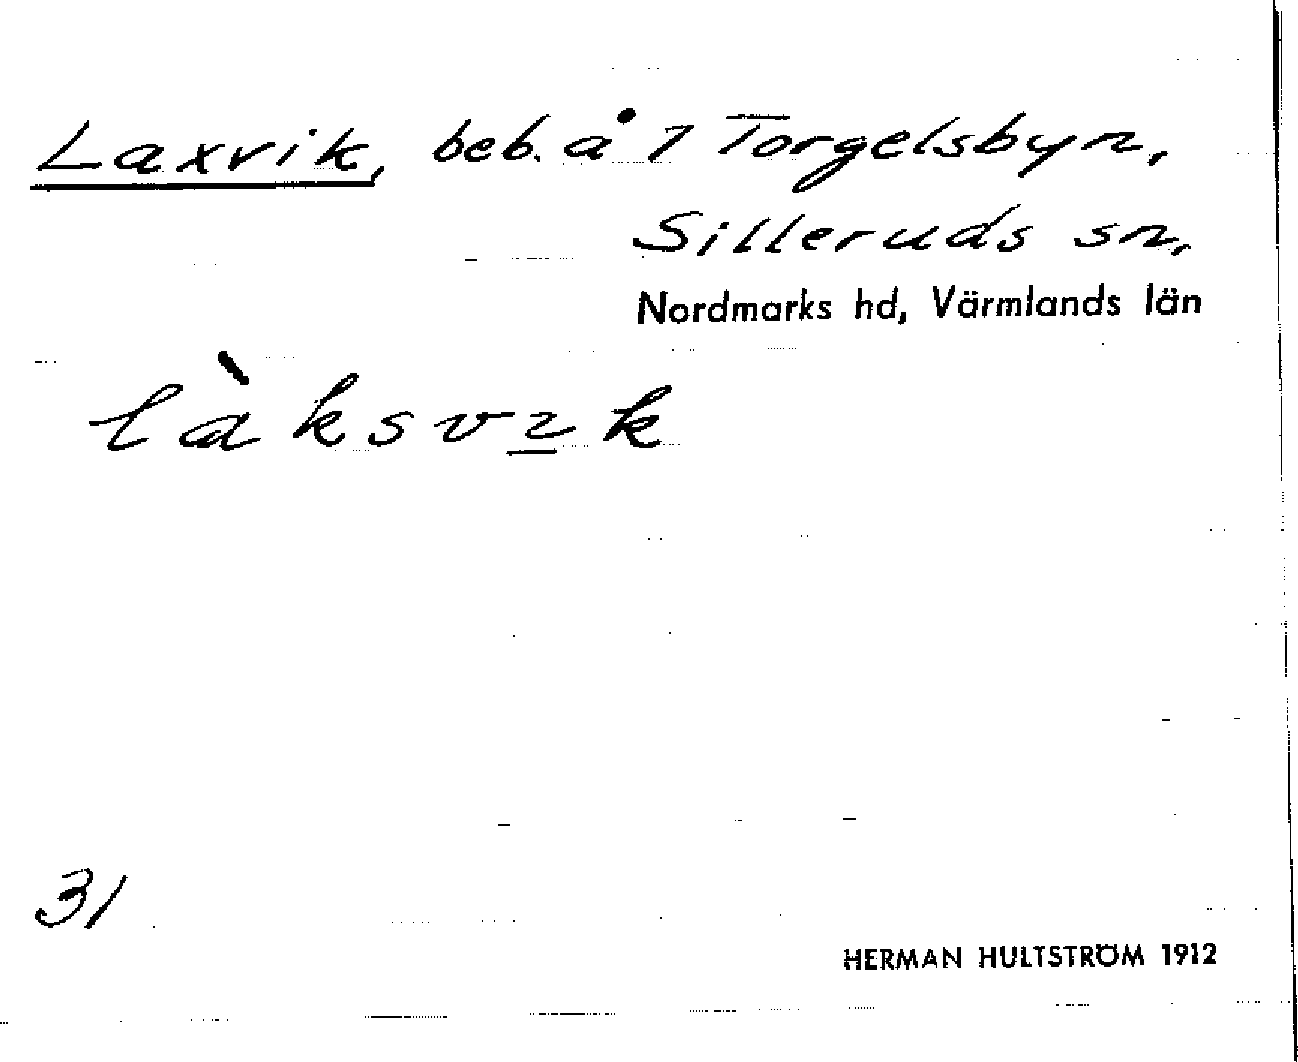 Laxvik, beb. å 1 Torgelsbyn,
Silleruds sn,
Nordmarks hd, Värmlands län
làksvɩk
31
HERMAN HULTSTRÖM 1912